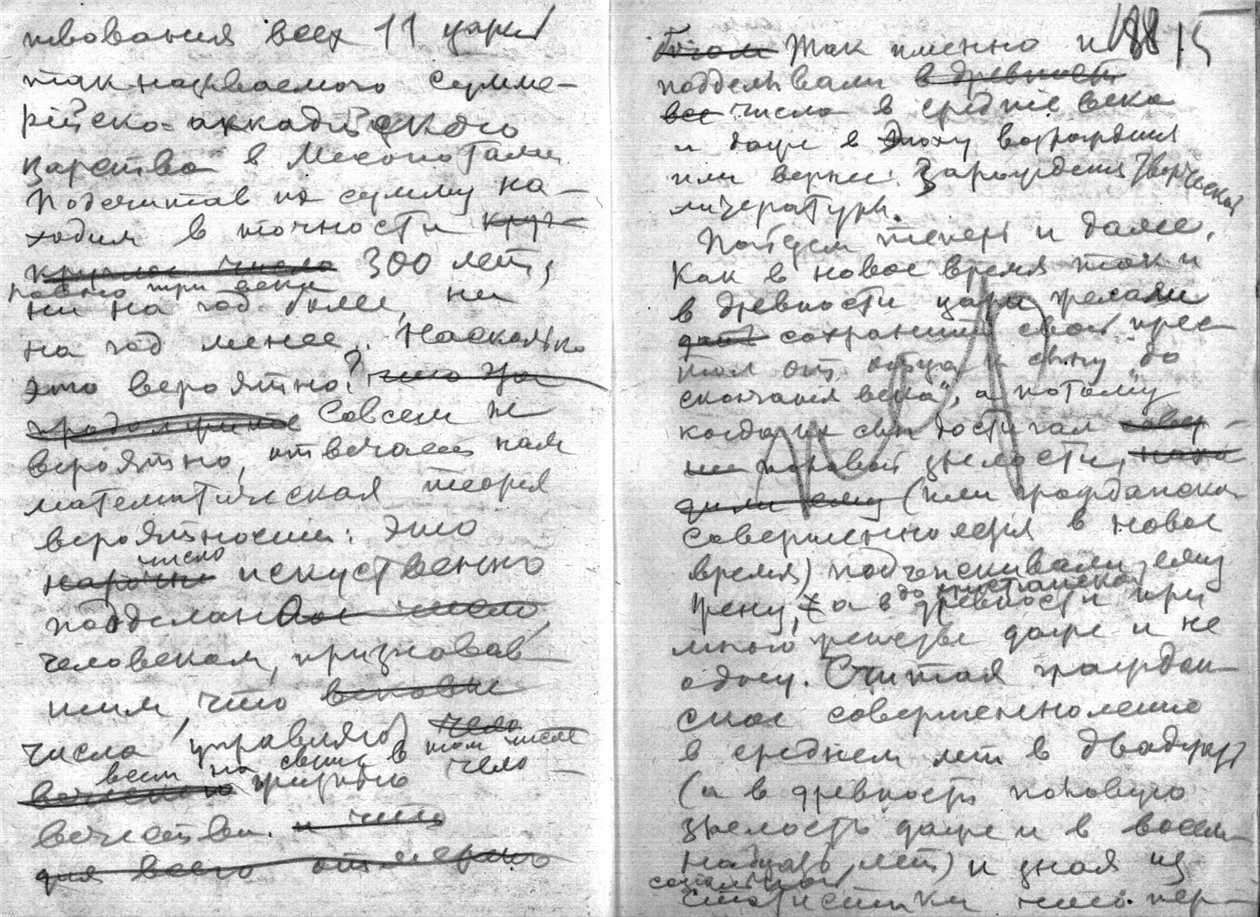 ствования всех 11 царей
так называемого сумме-
рийско-аккадийского
царства в Месопотамии
Подсчитав их сумму на-
ходим в точности круг-
круглое число 300 лет,
ровно три века
ни на год более, ни
на год менее. Насколько
это вероятно? что за
Совсем не
вероятно, отвечает нам
математическая теория
вероятности: это
число
нарочно искуственно
подделанное число
человеком, признавав-
шим, что вековые
числа управляют чело
всем на свете в том числе
вечеством природно чело-
вечества. и что
для всего отмерено
188 15
Богом Так именно и
подделывали в древности
все числа в средние века
и даже в эпоху возрождения
или вернее: Зарождения творческой
литературы.
Пойдем теперь и далее.
Как в новое время так и
в древности цари желали
дать сохранить свой прес-
тол от отца к сыну "до
скончания века", а потому
когда их сын достигал совер-
ше половой зрелости, нахо
дили ему (или гражданско
совершеннолетия в новое
время) подыскивали ему
до христианской
жену, а в древности при
много жёнстве даже и не
одну. Считая граждан-
ское совершеннолетие
в среднем лет в двадцать
(а в древность половую
зрелость даже и в восем-
надцать лет) и зная из
социальной
статистики что пер-